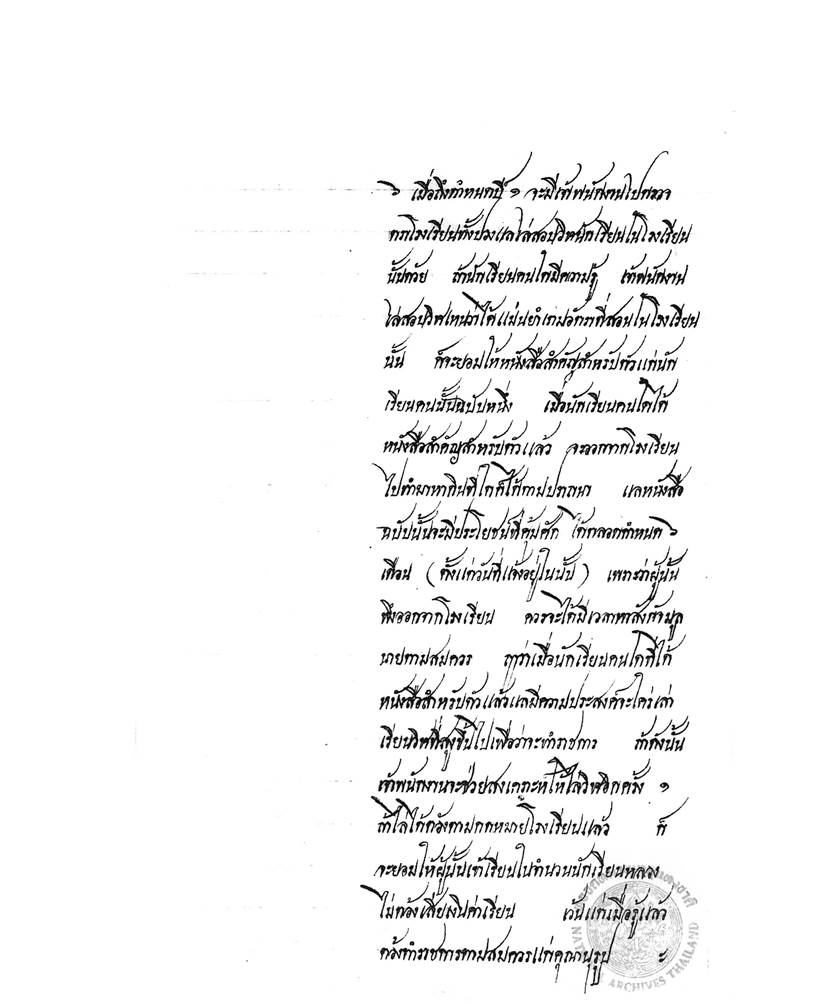 ๖ เมื่อถึงกำหนดปี ๑ จะมีเจ้าพนักงานไปตรวจ
ตราโรงเรียนทั้งปวงแลไล่สอบวิชานักเรียนในโรงเรียน
นั้นด้วย ถ้านักเรียนคนใดมีความรู้ เจ้าพนักงาน
ไล่สอบวิชาเหนว่าได้แม่นยำเกมอัดถ์ที่สอนในโรงเรียน
นั้น ก็จะยอมให้หนังสือสำคัญสำหรับตัวแก่นัก
เรียนคนนั้นฉบับหนึ่ง เมื่อนักเรียนคนใดได้
หนังสือสำคัญสำหรับตัวแล้ว จะออกจากโรงเรียน
ไปทำมาหากินที่ใดก็ได้ตามปราถนา แลหนังสือ
ฉบับนั้นจะมีประโยชน์ที่คุ้มสัก ได้ตลอดกำหนด ๖
เดือน (ตั้งแต่วันที่แจ้งอยู่ในนั้น) เพราะว่าผู้นั้น
พึ่งออกจากโรงเรียน ควรจะได้มีเวลาหาสังกัดมูล
นายตามสมควร ถ้าว่าเมื่อนักเรียนคนใดที่ได้
หนังสือสำหรับตัวแล้วแลมีความประสงค์จะใคร่เล่า
เรียนวิชาที่สูงขึ้นไปเพื่อว่าจะทำราชการ ถ้าดังนั้น
เจ้าพนักงานจะช่วยสงเคราะห์ให้ไล่วิชาอีกครั้ง ๑
ถ้าไล่ได้ต้องตามกดหมายโรงเรียนแล้ว ก็
จะยอมให้ผู้นั้นเข้าเรียนในจำนวนนักเรียนหลวง
ไม่ต้องเสียเงินค่าเรียน เว้นแต่เมื่อรู้แล้ว
ต้องทำราชการตามสมควรแก่คุณานุรูป ะ
NATIONAL ARCHIVES THAILAND